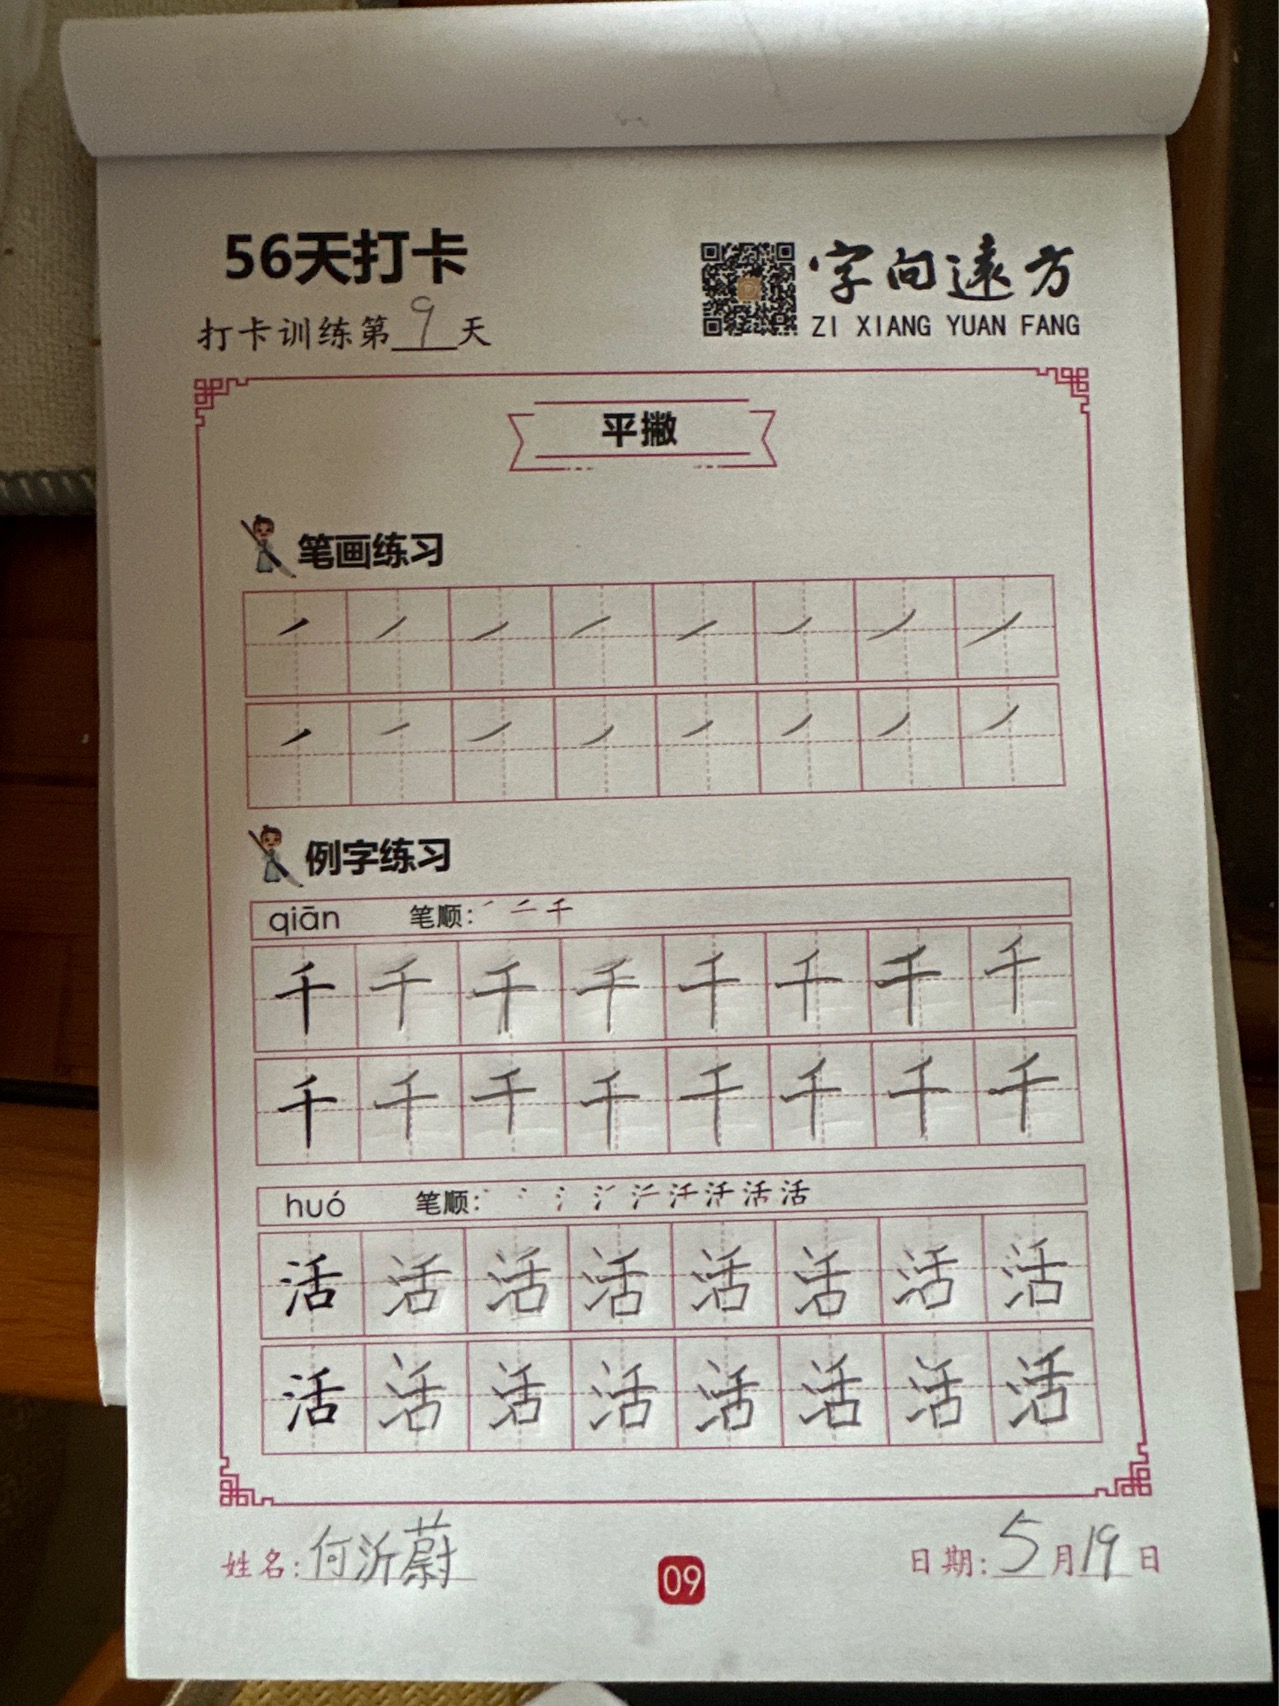 56天打卡
字向遠方
打卡训练第9天
ZI XIANG YUAN FANG
平撇
笔画练习
例字练习
qiān 笔顺: ㇒ 二 千
千 千 千 千 千 千 千 千
千 千 千 千 千 千 千 千
huó 笔顺:
活 活 活 活 活 活 活 活
活 活 活 活 活 活 活 活
姓名:何沂蔚
09
日期:5月19日